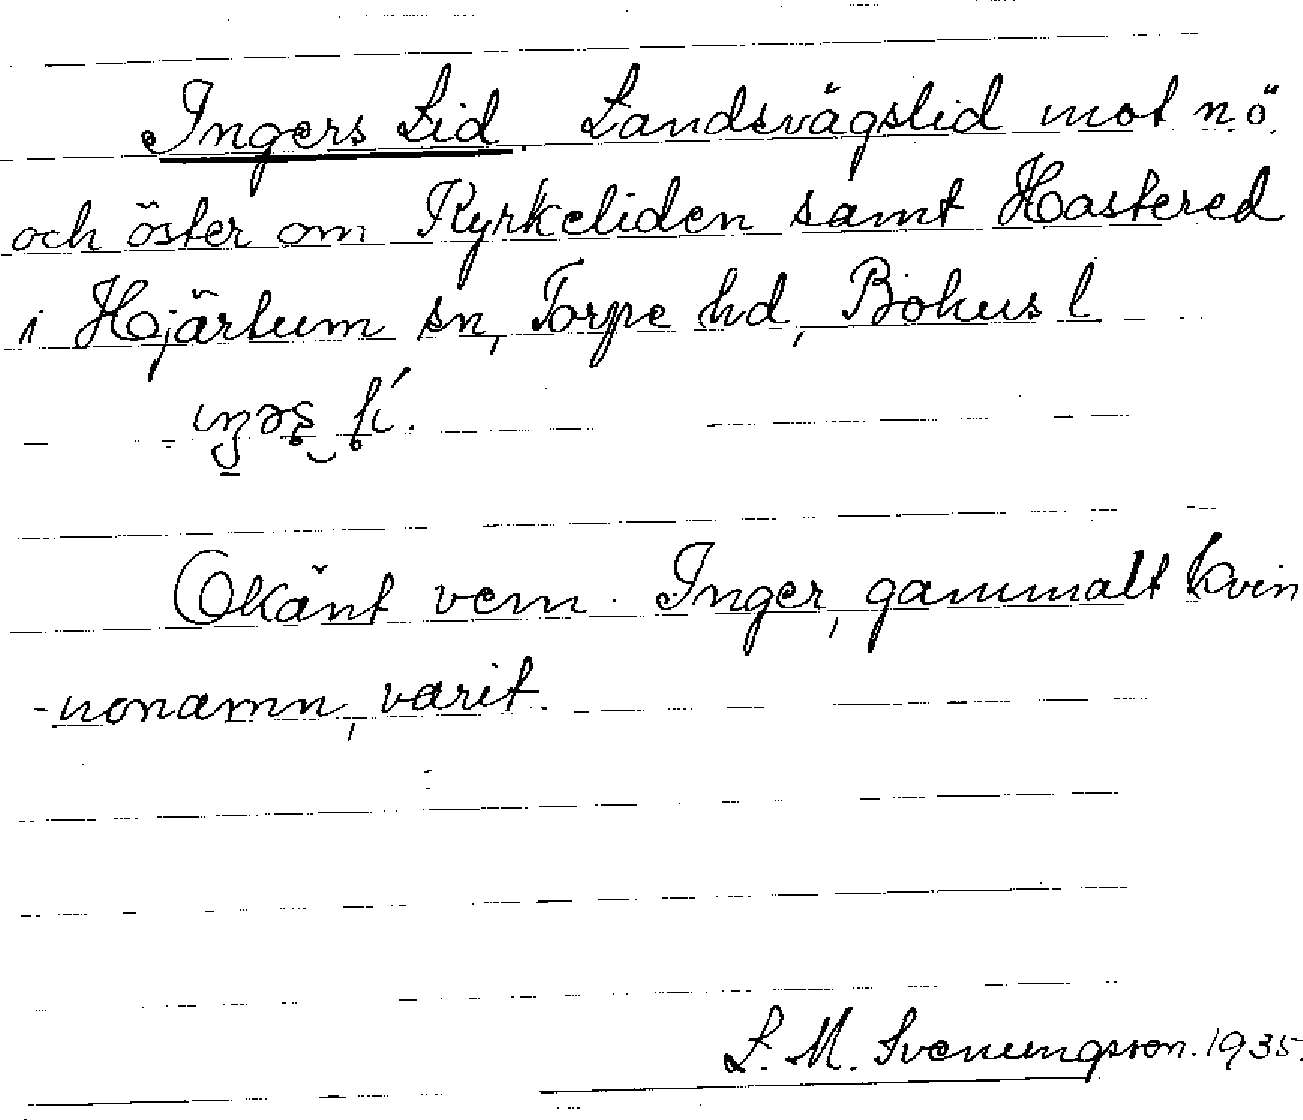 Ingers Lid. Landsvägslid mot n.ö.
och öster om Kyrkeliden samt Hastered
i Hjärtum sn, Torpe hd, Bohus l
Okänt vem Inger, gammalt kvin
-nonamn, varit.
L. M. Svenungsson. 1935.